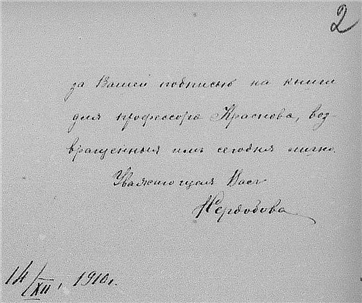 2
за Вашей подписью на книги
для профессора Краснова, воз-
вращенныя имъ сегодня лично.
Уважающая Васъ
14/XII, 1910 г.